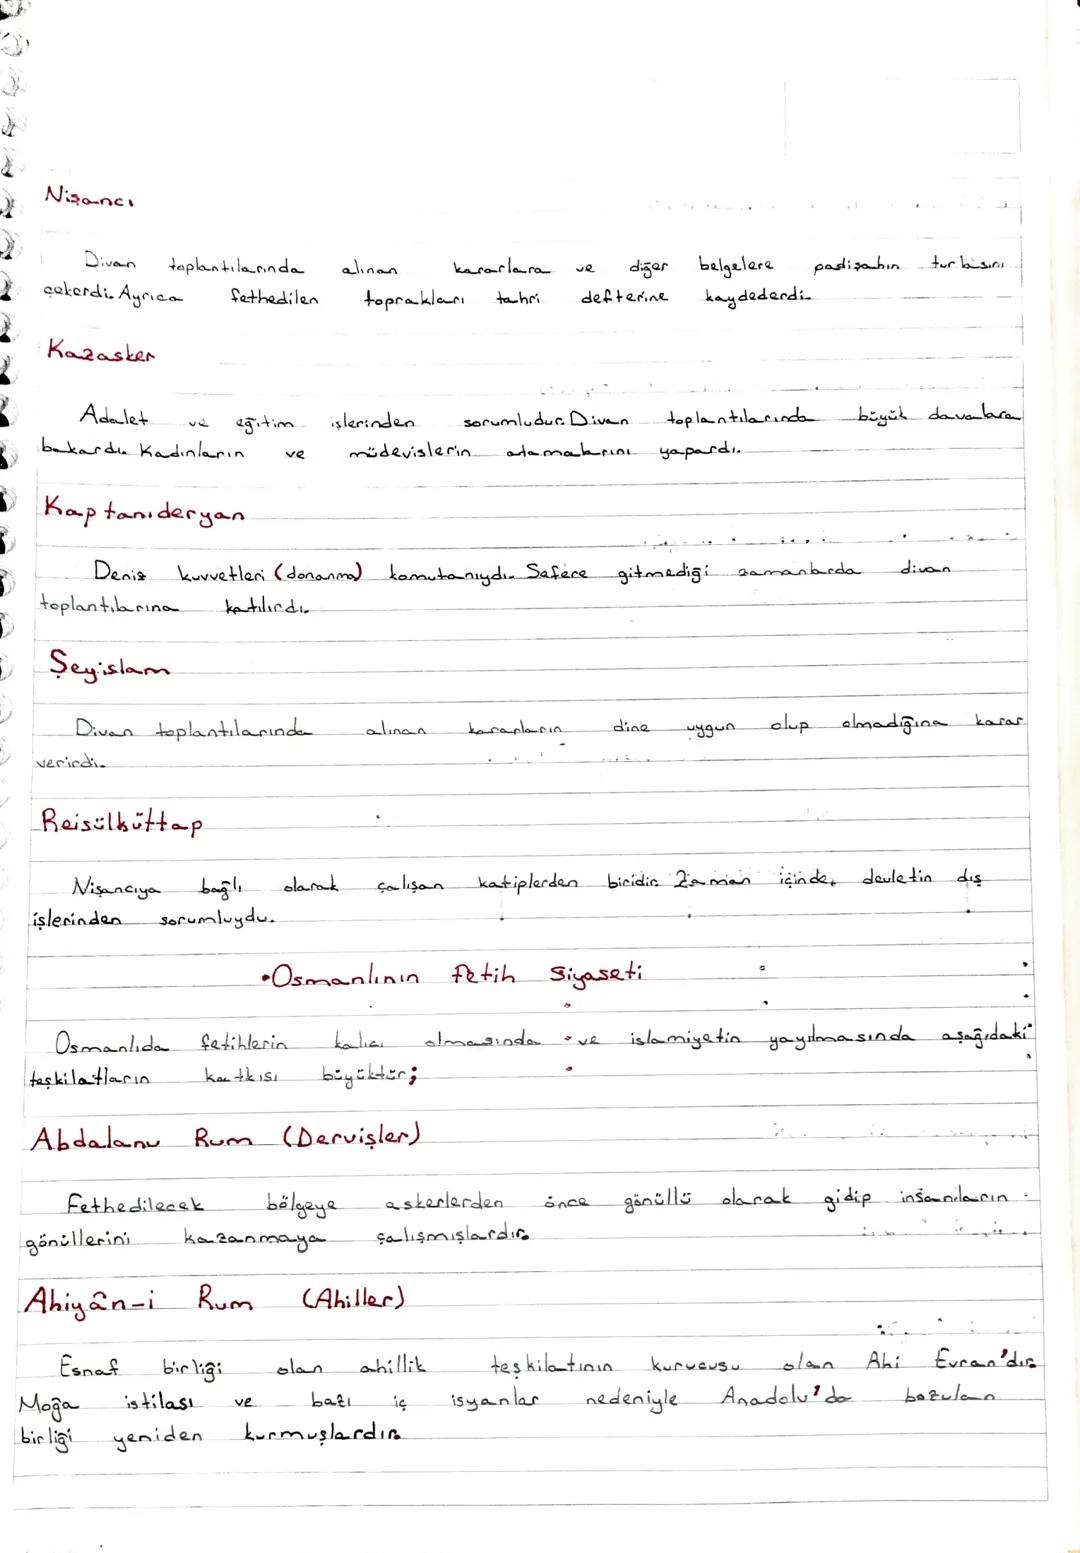 Nişancı
Divan toplantılarında alınan kararlara ve diğer belgelere padişahın turbasını
çekerdi. Ayrıca fethedilen toprakları tahri defterine kaydederdi.
Kazasker
Adalet ve eğitim işlerinden sorumludur. Divan toplantılarında büyük davalara
bakardı. Kadınların ve müdevislerin atamalarını yapardı.
Kaptanıderyan
Deniz kuvvetleri (donanma) komutanıydı. Safere gitmediği zamanlarda divan
toplantılarına katılırdı.
Şeyislam
Divan toplantılarında alınan kararların dine uygun olup olmadığına karar
verirdi.
Reisülküttap
Nişancıya bağlı olarak çalışan katiplerden biridir. Zaman içinde, devletin dış
işlerinden sorumluydu.
•Osmanlının fetih siyaseti
Osmanlıda fetihlerin kalıcı olmasında ve islamiyetin yayılmasında aşağıdaki
teşkilatların katkısı büyüktür;
Abdalanu Rum (Dervişler)
Fethedilecek bölgeye askerlerden önce gönüllü olarak gidip insanıların
gönüllerini kazanmaya çalışmışlardır.
Ahiyân-i Rum (Ahiller)
Esnaf birliği olan ahillik teşkilatının kurucusu olan Ahi Evran'dır.
Moğa istilası ve bazı iç isyanlar nedeniyle Anadolu'da bozulan
birliği yeniden kurmuşlardır.